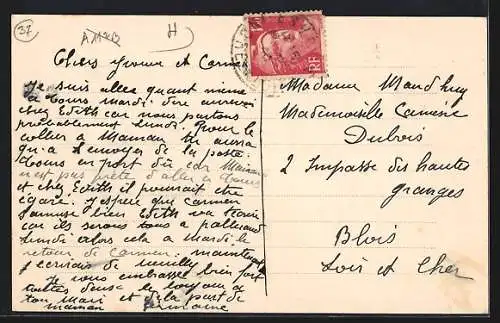 37
H
Chers Yvonne et Carm
Je suis allee quant meme
à Tours mardi dire aurevoir
chez Edith car nous partons
probablement Lundi. pour le
collier a Maman tu auras
qu'a l'envoyer de la poste
Tours en port dû car Maman
n'est pas prete d'aller a Tours
et chez Edith il pourrait etre
égaré. J'espere que Carmen
s'amuse bien Edith va écrire
car ils serons tous a palluau
Lundi alors cela a Mardi le
retour de Carmen. maintenant
j'ecrirais de neuilly
Je vous embrasse bien fort
toutes deux le
ton Mari et de la part de
maman
RF
Madame Mandhuy
Mademoiselle Camène
Dubois
2 Impasse des hautes
granges
Blois
Loir et Cher